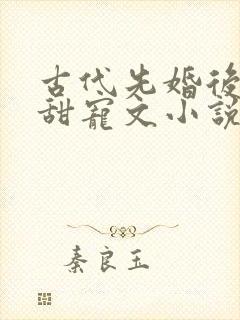 古代先婚後
甜寵文小說
秦良玉